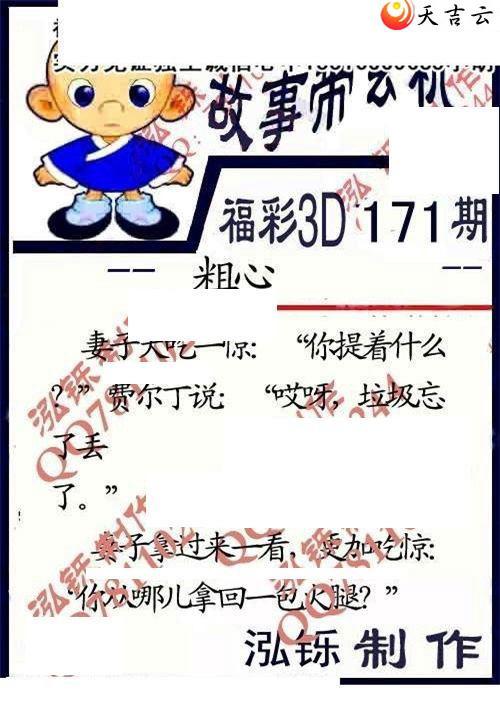 天吉云
故事带玄机
福彩3D 171期
-- 粗心 --
妻子大吃一惊：“你提着什么
？”费尔丁说：“哎呀，垃圾忘
了丢
了。”
妻子拿过来一看，更加吃惊：
“你从哪儿拿回一包火腿？”
泓铄制作